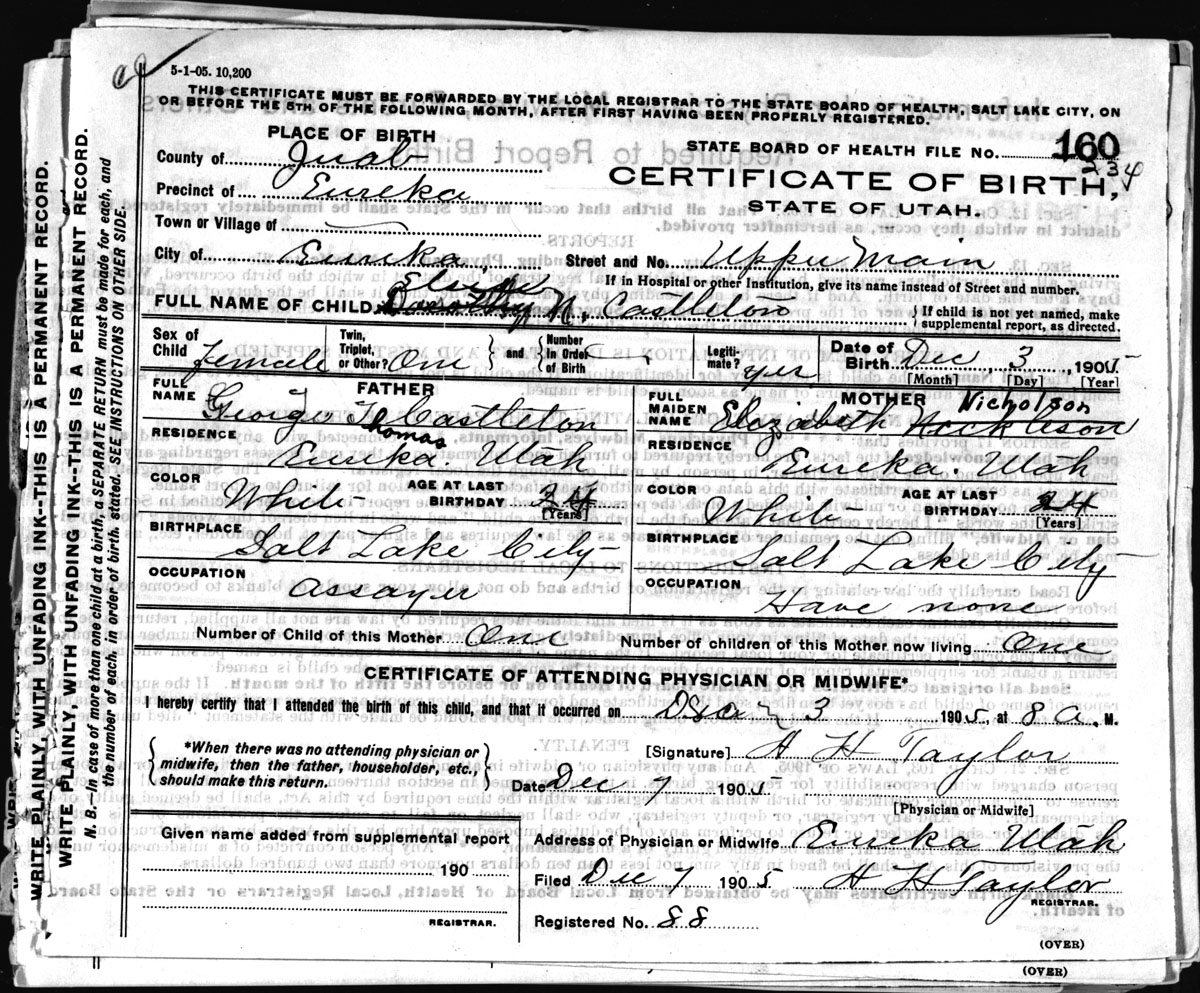 5-1-05. 10,200
THIS CERTIFICATE MUST BE FORWARDED BY THE LOCAL REGISTRAR TO THE STATE BOARD OF HEALTH, SALT LAKE CITY, ON
OR BEFORE THE 5TH OF THE FOLLOWING MONTH, AFTER FIRST HAVING BEEN PROPERLY REGISTERED.
PLACE OF BIRTH
STATE BOARD OF HEALTH FILE No. 160
234
County of Juab
CERTIFICATE OF BIRTH,
STATE OF UTAH.
Precinct of Eureka
Town or Village of
City of Eureka, Street and No. Upper Main
If in Hospital or other Institution, give its name instead of Street and number.
FULL NAME OF CHILD Dorothy N, Castleton
{ If child is not yet named, make supplemental report, as directed.
Sex of Child Female Twin, Triplet, or Other? One { and } Number in Order of Birth Legitimate? yes Date of Birth Dec 3, 1905
[Month] [Day] [Year]
FATHER
FULL NAME George T Castleton
Thomas
RESIDENCE Eureka. Utah
COLOR White AGE AT LAST BIRTHDAY 24
[Years]
BIRTHPLACE Salt Lake City
OCCUPATION Assayer
MOTHER
Nicholson
FULL MAIDEN NAME Elizabeth Nickleson
RESIDENCE Eureka. Utah
COLOR White AGE AT LAST BIRTHDAY 24
[Years]
BIRTHPLACE Salt Lake City
OCCUPATION Have none
Number of Child of this Mother One Number of children of this Mother now living One
CERTIFICATE OF ATTENDING PHYSICIAN OR MIDWIFE*
I hereby certify that I attended the birth of this child, and that it occurred on Dec 3 1905, at 8 a. M.
{ *When there was no attending physician or midwife, then the father, householder, etc., should make this return. }
[Signature] H H Taylor
Date Dec 7 1905
[Physician or Midwife]
Given name added from supplemental report
190
REGISTRAR.
Address of Physician or Midwife Eureka Utah
Filed Dec 7 1905. H H Taylor
REGISTRAR.
Registered No. 88
(OVER)
(OVER)
WRITE PLAINLY, WITH UNFADING INK--THIS IS A PERMANENT RECORD.
WRITE PLAINLY, WITH UNFADING INK--THIS IS A PERMANENT RECORD.
N. B.--In case of more than one child at a birth, a SEPARATE RETURN must be made for each, and
the number of each, in order of birth, stated. SEE INSTRUCTIONS ON OTHER SIDE.